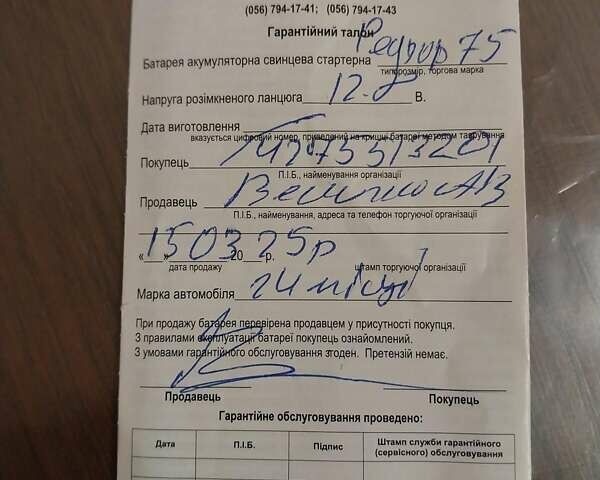 (056) 794-17-41; (056) 794-17-43
Гарантійний талон
Батарея акумуляторна свинцева стартерна 75
типорозмір, торгова марка
Напруга розімкненого ланцюга 12.8 В.
Дата виготовлення
вказується цифровий номер, приведений на кришці батареї методом таврування
Покупець
П.І.Б., найменування організації
Продавець
П.І.Б., найменування, адреса та телефон торгуючої організації
« 15 » 03 20 25р р.
дата продажу штамп торгуючої організації
Марка автомобіля 24 місяці
При продажу батарея перевірена продавцем у присутності покупця.
З правилами експлуатації батареї покупець ознайомлений.
З умовами гарантійного обслуговування згоден. Претензій немає.
Продавець Покупець
Гарантійне обслуговування проведено:
Дата П.І.Б. Підпис Штамп служби гарантійного
(сервісного) обслуговування